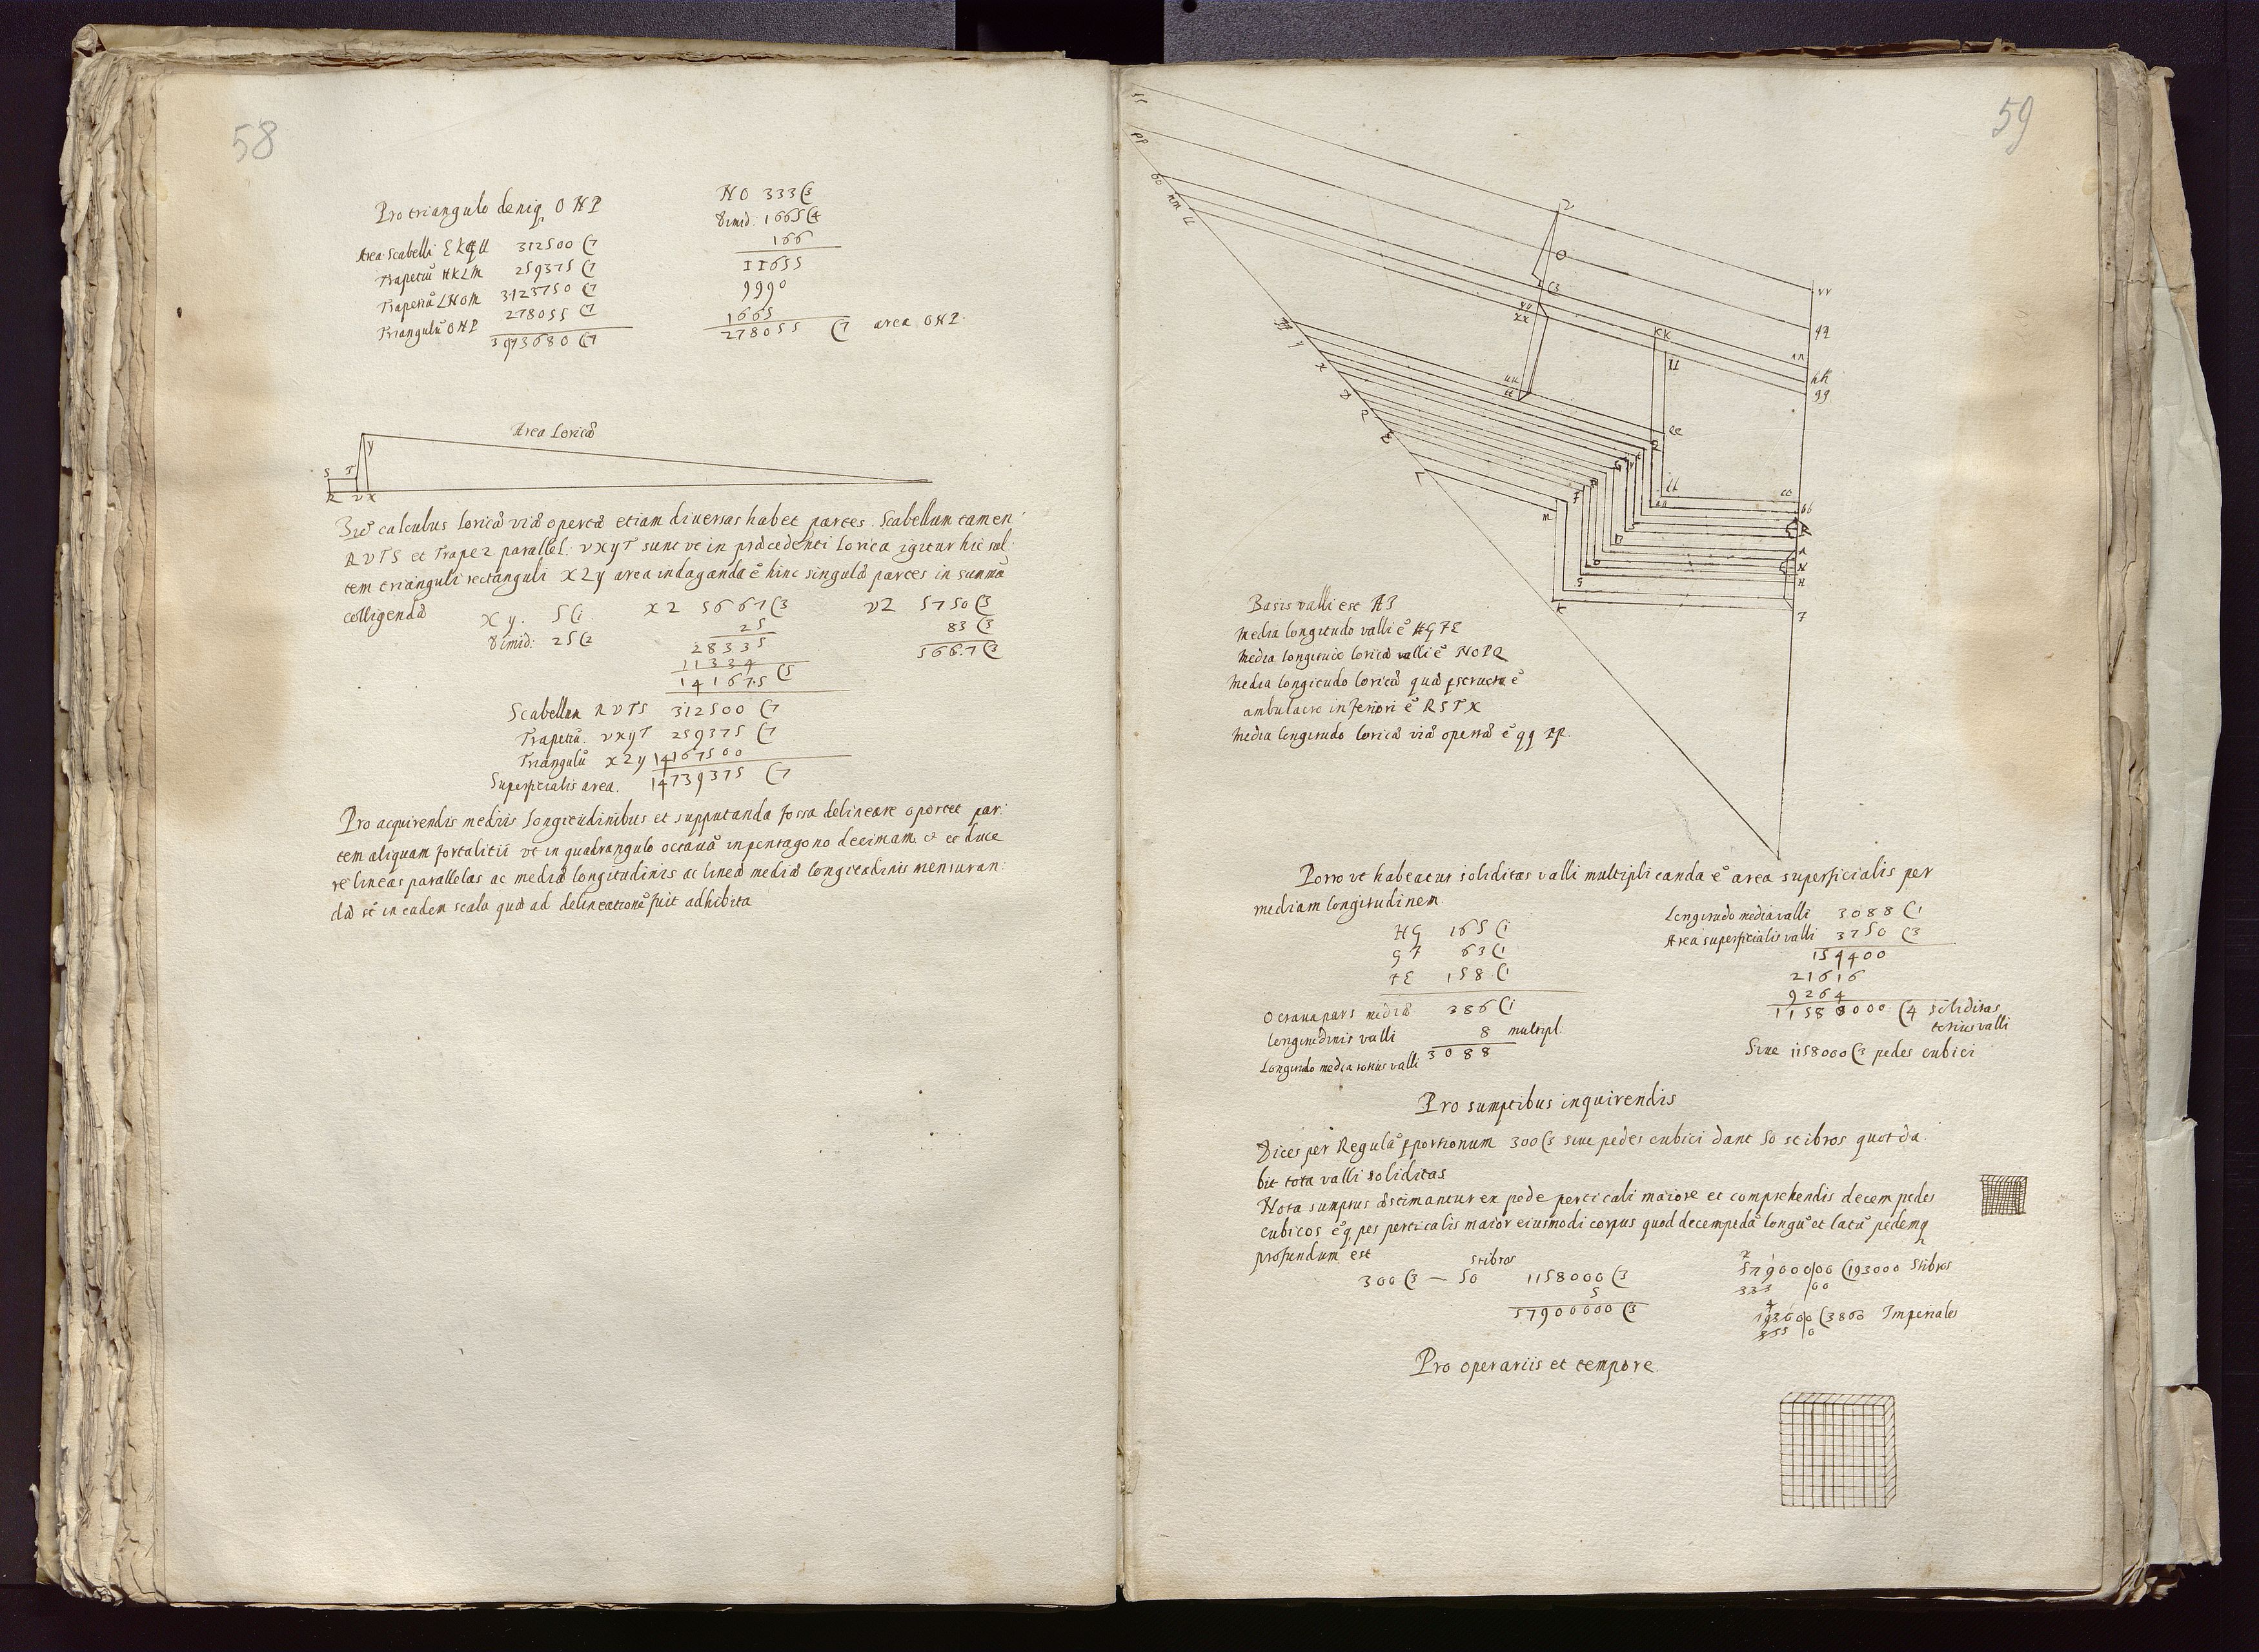 58
Pro triangulo deniq O N P
Area Scabelli 312500 (7
Trapeziū HKLM 259375 (7
Trapeziū LNOM 3123750 (7
Triangulū ONP 278055 (7
3973680 (7
NO 333 (3
Dimid: 1665 (4
166
11655
9990
1665
278055 (7 area ONP.
Area Loricæ
S T Y
R V X
calculus loricæ viæ opertæ etiam diuersas habet partes. Scabellum tamen
RVTS et Trapez parallel: VXYT sunt vt in præcedenti lorica igitur hic sal:
tem trianguli rectanguli XZY area indaganda ē hinc singulæ partes in summā
colligendæ
XY. 5 (1
Dimid: 25 (2
XZ 5667 (3
25
28335
11334
141675 (5
VZ 5750 (3
83 (3
5667 (3
Scabellum RVTS 312500 (7
Trapeziū. VXYT 259375 (7
Triangulū XZY 14167500
Superficialis area. 14739375 (7
Pro acquirendis mediis longitudinibus et supputanda fossa delineare oportet par:
tem aliquam fortalitii vt in quadrangulo octauā in pentagono decimam et duce
re lineas parallelas ac mediæ longitudinis ac lineæ mediæ longitudinis mensuran:
dæ st in eadem scala quæ ad delineationē fuit adhibita
59
Basis valli est AB
Media longitudo valli ē HGFE
Media longitudo loricæ valli ē NOPQ
Media longitudo loricæ quæ pstructa ē
ambulacro inferiori ē RSTX
Media longitudo loricæ viæ opertæ ē qq pp.
Porro vt habeatur soliditas valli multiplicanda ē area superficialis per
mediam longitudinem.
HG 165 (1
GF 63 (1
FE 158 (1
Octaua pars mediæ 386 (1
longitudinis valli 8 multipl.
Longitudo media totius valli 3088
Longitudo media valli 3088 (1
Area superficialis valli 3750 (3
154400
21616
9264
11580000 (4 soliditas
totius valli
Siue 1158000 (3 pedes cubici
Pro sumptibus inquirendis
Dices per Regulā pportionum 300 (3 siue pedes cubici dant 50 stibros quot da
bit tota valli soliditas
Nota sumptus æstimantur ex pede perticali maiore et comprehendis decem pedes
cubicos ē q pes perticalis maior eiusmodi corpus quod decempedā longū et latū pedemq
profundum est
stibros
300 (3 — 50 1158000 (3
5
57900000 (3
579000|00 (193000 Stibros
333 |00
19300|0 (3860 Imperiales
555 |0
Pro operariis et tempore.